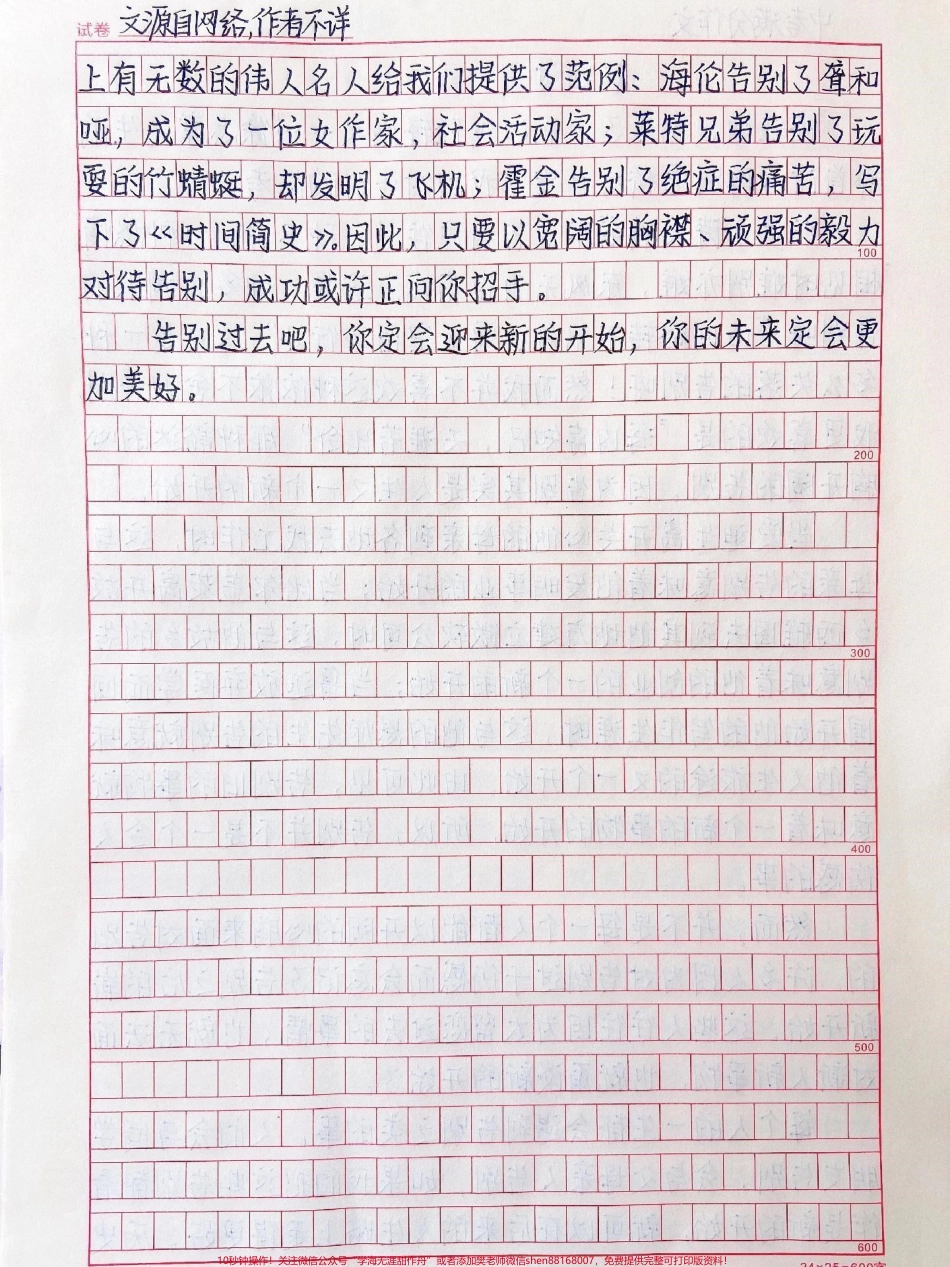 试卷 文源自网络,作者不详
上有无数的伟人名人给我们提供了范例：海伦告别了聋和
哑，成为了一位女作家，社会活动家；莱特兄弟告别了玩
耍的竹蜻蜓，却发明了飞机；霍金告别了绝症的痛苦，写
下了《时间简史》。因此，只要以宽阔的胸襟、顽强的毅力
100
对待告别，成功或许正向你招手。
告别过去吧，你定会迎来新的开始，你的未来定会更
加美好。
200
300
400
500
600
10秒钟操作！关注微信公众号“学海无涯甜作舟”或者添加奥老师微信shen88168007，免费提供完整可打印版资料！
24×25=600字